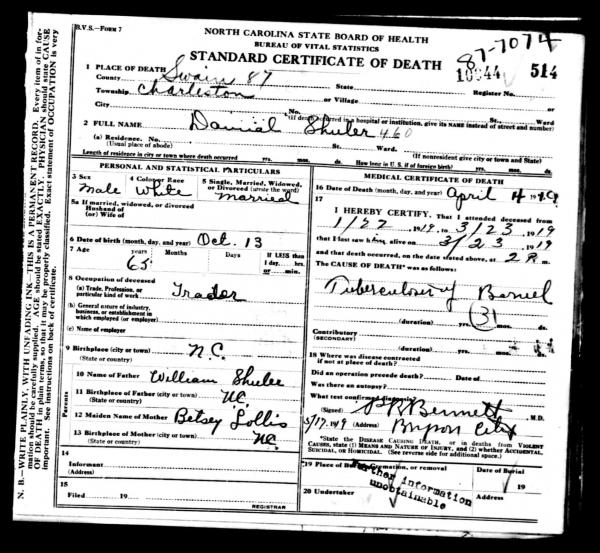 B.V.S.—FORM 7
NORTH CAROLINA STATE BOARD OF HEALTH
BUREAU OF VITAL STATISTICS
STANDARD CERTIFICATE OF DEATH
87-7074
514
1 PLACE OF DEATH
County Swain 87 State Register No.
Township Charleston or Village
City No. St. Ward.
(If death occurred in a hospital or institution, give its NAME instead of street and number)
2 FULL NAME Danial Shuler 460
(a) Residence. No. St. Ward.
(Usual place of abode) (If nonresident give city or town and State)
Length of residence in city or town where death occurred yrs. mos. ds. How long in U. S. if of foreign birth? yrs. mos. ds.
PERSONAL AND STATISTICAL PARTICULARS
3 Sex 4 Color or Race 5 Single, Married, Widowed, or Divorced (write the word)
Male White Married
5a If married, widowed, or divorced
Husband of
(or) Wife of
6 Date of birth (month, day, and year) Oct. 13
7 Age years Months Days If LESS than 1 day, hrs. or min.
65
8 Occupation of deceased
(a) Trade, Profession, or particular kind of work Trader
(b) General nature of industry, business, or establishment in which employed (or employer)
(c) Name of employer
9 Birthplace (city or town) N.C.
(State or country)
Parents
10 Name of Father William Shuler
11 Birthplace of Father (city or town) NC.
(State or country)
12 Maiden Name of Mother Betsey Lollis
13 Birthplace of Mother (city or town) NC.
(State or country)
14
Informant
(Address)
15
Filed 19
REGISTRAR
MEDICAL CERTIFICATE OF DEATH
16 Date of Death (month, day, and year) April 4 1919
17
I HEREBY CERTIFY, That I attended deceased from
1/22 1919, to 3/23 1919
that I last saw him alive on 3/23 1919
and that death occurred, on the date stated above, at 2 P. m.
The CAUSE OF DEATH* was as follows:
Tuberculosis of Bowel
(31)
(duration) yrs. mos. ds.
Contributory
(SECONDARY)
(duration) yrs. mos. ds.
18 Where was disease contracted
if not at place of death?
Did an operation precede death? Date of
Was there an autopsy?
What test confirmed diagnosis?
(Signed) P R Bennett M.D.
5/17 1919 (Address) Bryson City
*STATE the DISEASE CAUSING DEATH, or in deaths from VIOLENT CAUSES, state (1) MEANS AND NATURE OF INJURY, and (2) whether ACCIDENTAL, SUICIDAL, or HOMICIDAL. (See reverse side for additional space.)
19 Place of Burial, Cremation, or removal Date of Burial
19
Further information
unobtainable
20 Undertaker Address
N. B.—WRITE PLAINLY, WITH UNFADING INK—THIS IS A PERMANENT RECORD. Every item of information should be carefully supplied. AGE should be stated EXACTLY. PHYSICIAN should state CAUSE OF DEATH in plain terms, so that it may be properly classified. Exact statement of OCCUPATION is very important. See instructions on back of certificate.